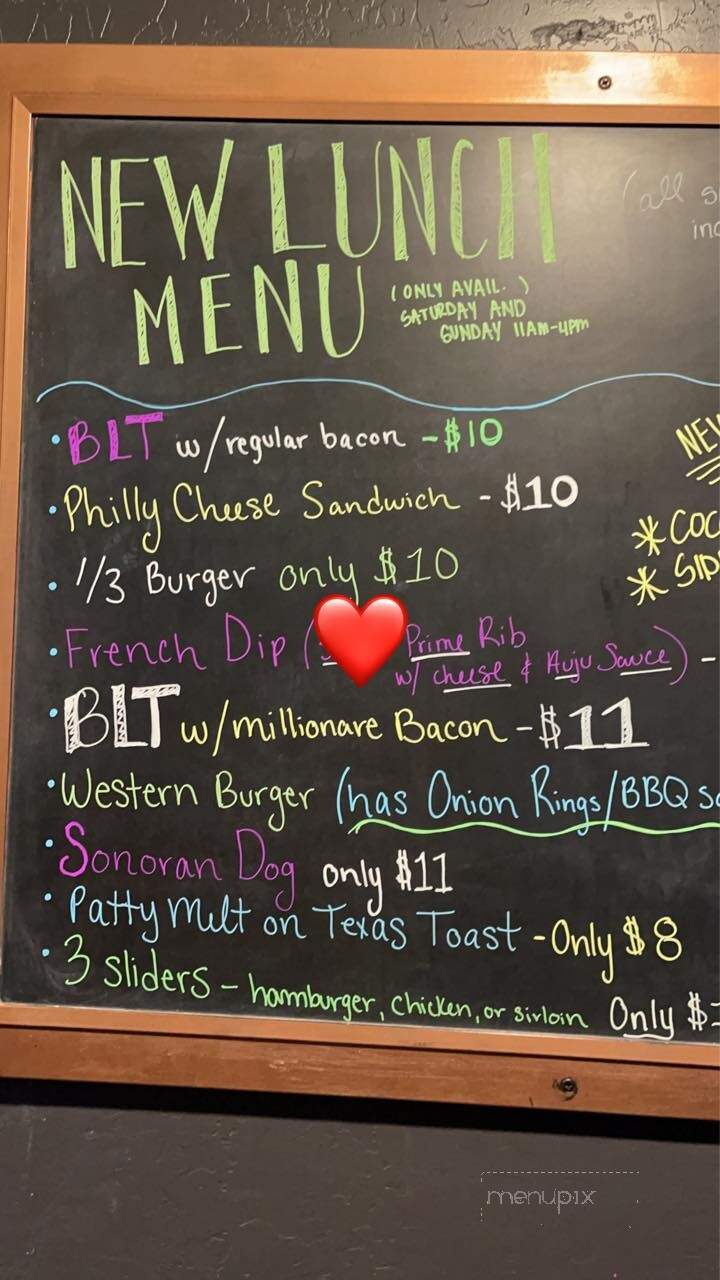 NEW LUNCH
MENU
(ONLY AVAIL.)
SATURDAY AND
SUNDAY 11AM-4PM
(all
• BLT w/regular bacon - $10
• Philly Cheese Sandwich - $10
• 1/3 Burger only $10
• French Dip ( Prime Rib
w/ cheese & Auju Sauce) -
• BLT w/millionare Bacon - $11
• Western Burger (has Onion Rings/BBQ
• Sonoran Dog only $11
• Patty Melt on Texas Toast - Only $8
• 3 sliders - hamburger, chicken, or sirloin Only $
menupix